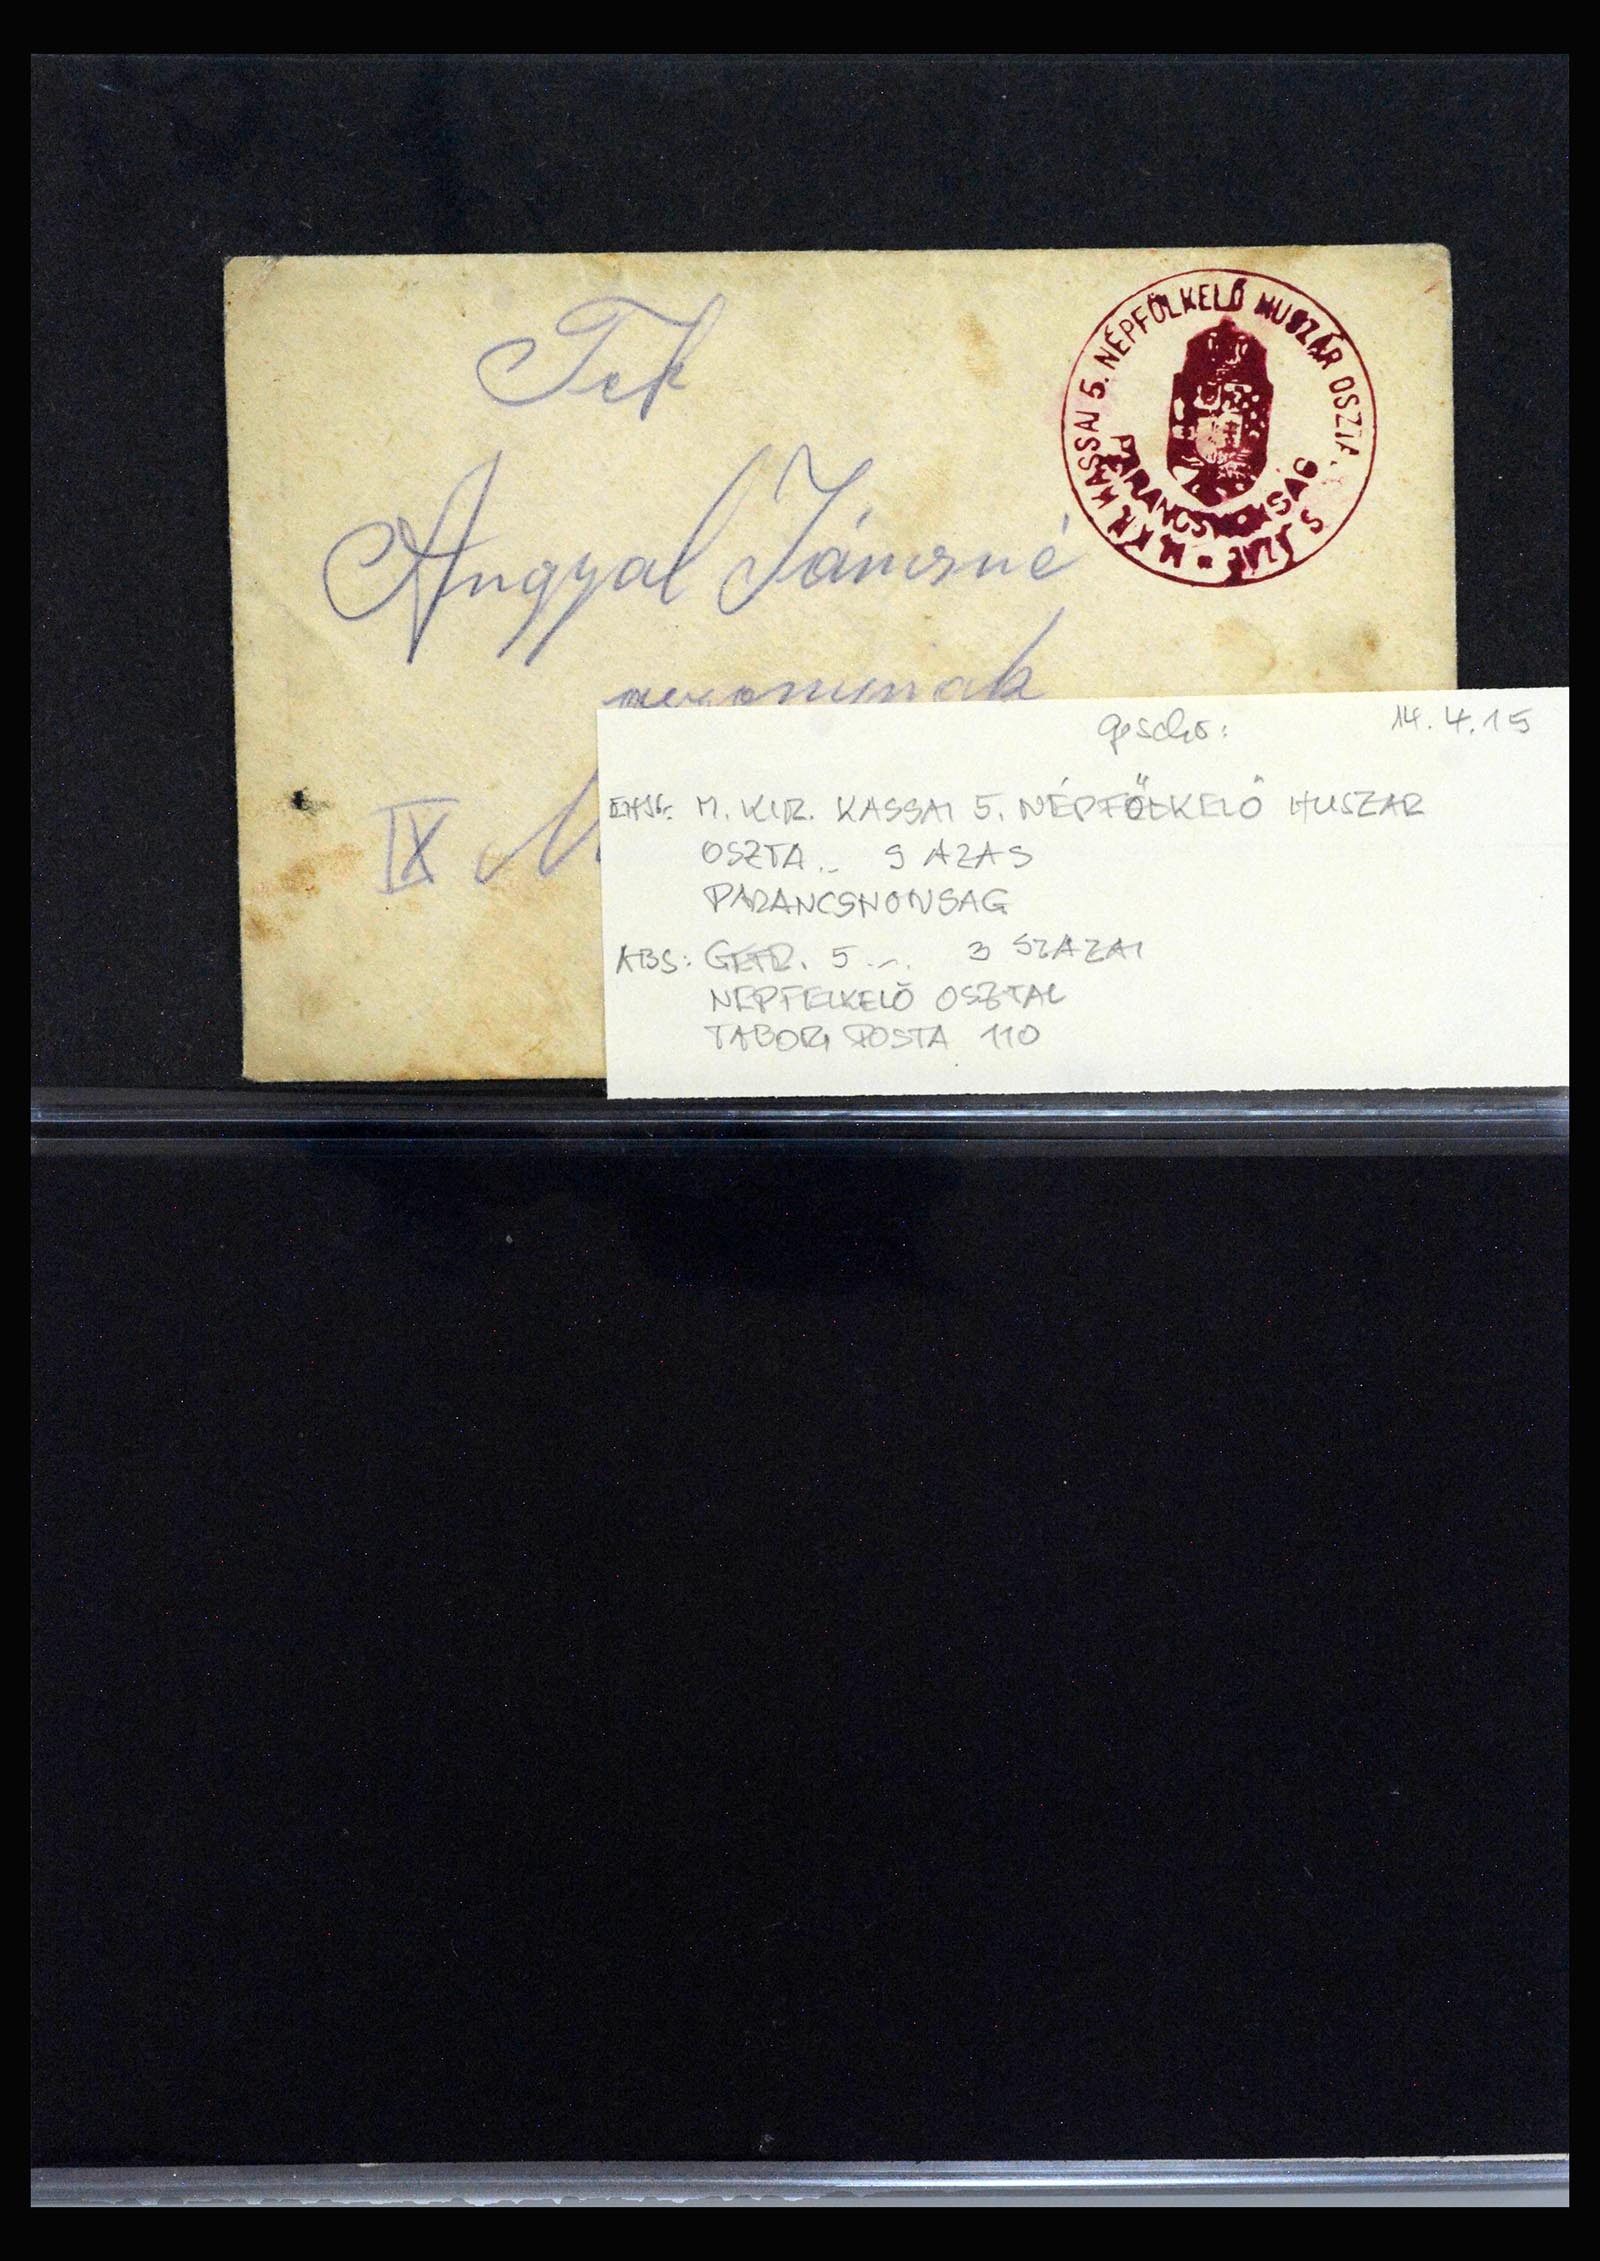 Tek
Angyal Jánosné
IX
M. KIR. KASSAI 5. NÉPFÖLKELŐ HUSZÁR OSZTÁ
PARANCSNOKSÁG
geschr: 14.4.15
M. KIR. KASSAI 5. NÉPFÖLKELŐ HUSZAR
OSZTA.. S AZAS
PARANCSNONSAG
ABS: 5 ... 3 SZAZAI
NEPFELKELŐ OSZTAL
TABORI POSTA 110